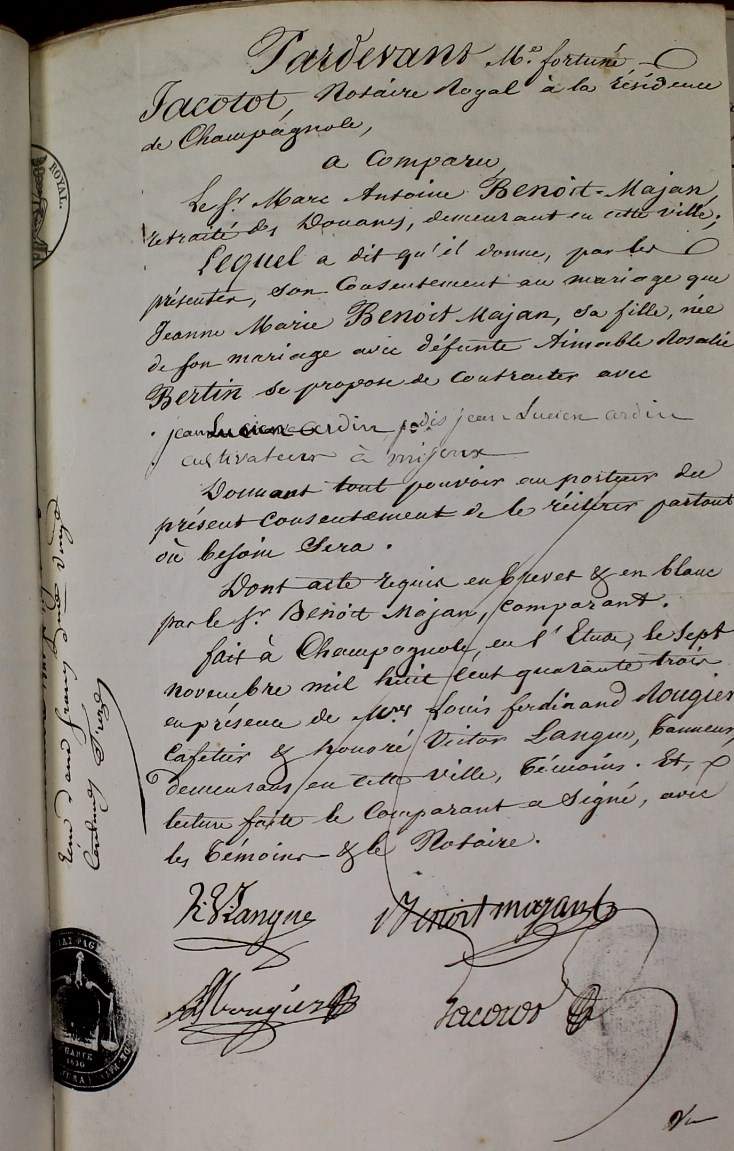 Pardevant Me. fortuné
Jacotot, Notaire Royal à la résidence
de Champagnole,
a Comparu,
Le Sr. Marc Antoine Benoit-Majan,
retraité des Douanes, demeurant en cette ville;
Lequel a dit qu'il donne, par les
présentes, son Consentement au mariage que
Jeanne Marie Benoit Majan, sa fille, née
de son mariage avec défunte Aimable Rosalie
Bertin se propose de Contracter avec
jean Lucien ardin jean Lucien ardin
cultivateur à mijoux
Donnant tout pouvoir au porteur du
présent Consentement de le réitérer partout
où besoin Sera.
Dont acte requis en brevet & en blanc
par le Sr. Benoit Majan, Comparant.
fait à Champagnole, en l'Etude, le Sept
novembre mil huit Cent quarante trois
en présence de Mrs Louis ferdinand Rougier
Cafetier & honoré Victor Langue, Tanneur,
demeurans en cette ville, témoins. Et,
lecture faite le Comparant a Signé, avec
les témoins & le Notaire.
h. V. Langue Benoit majant
Rougier Jacotot
ROYAL.